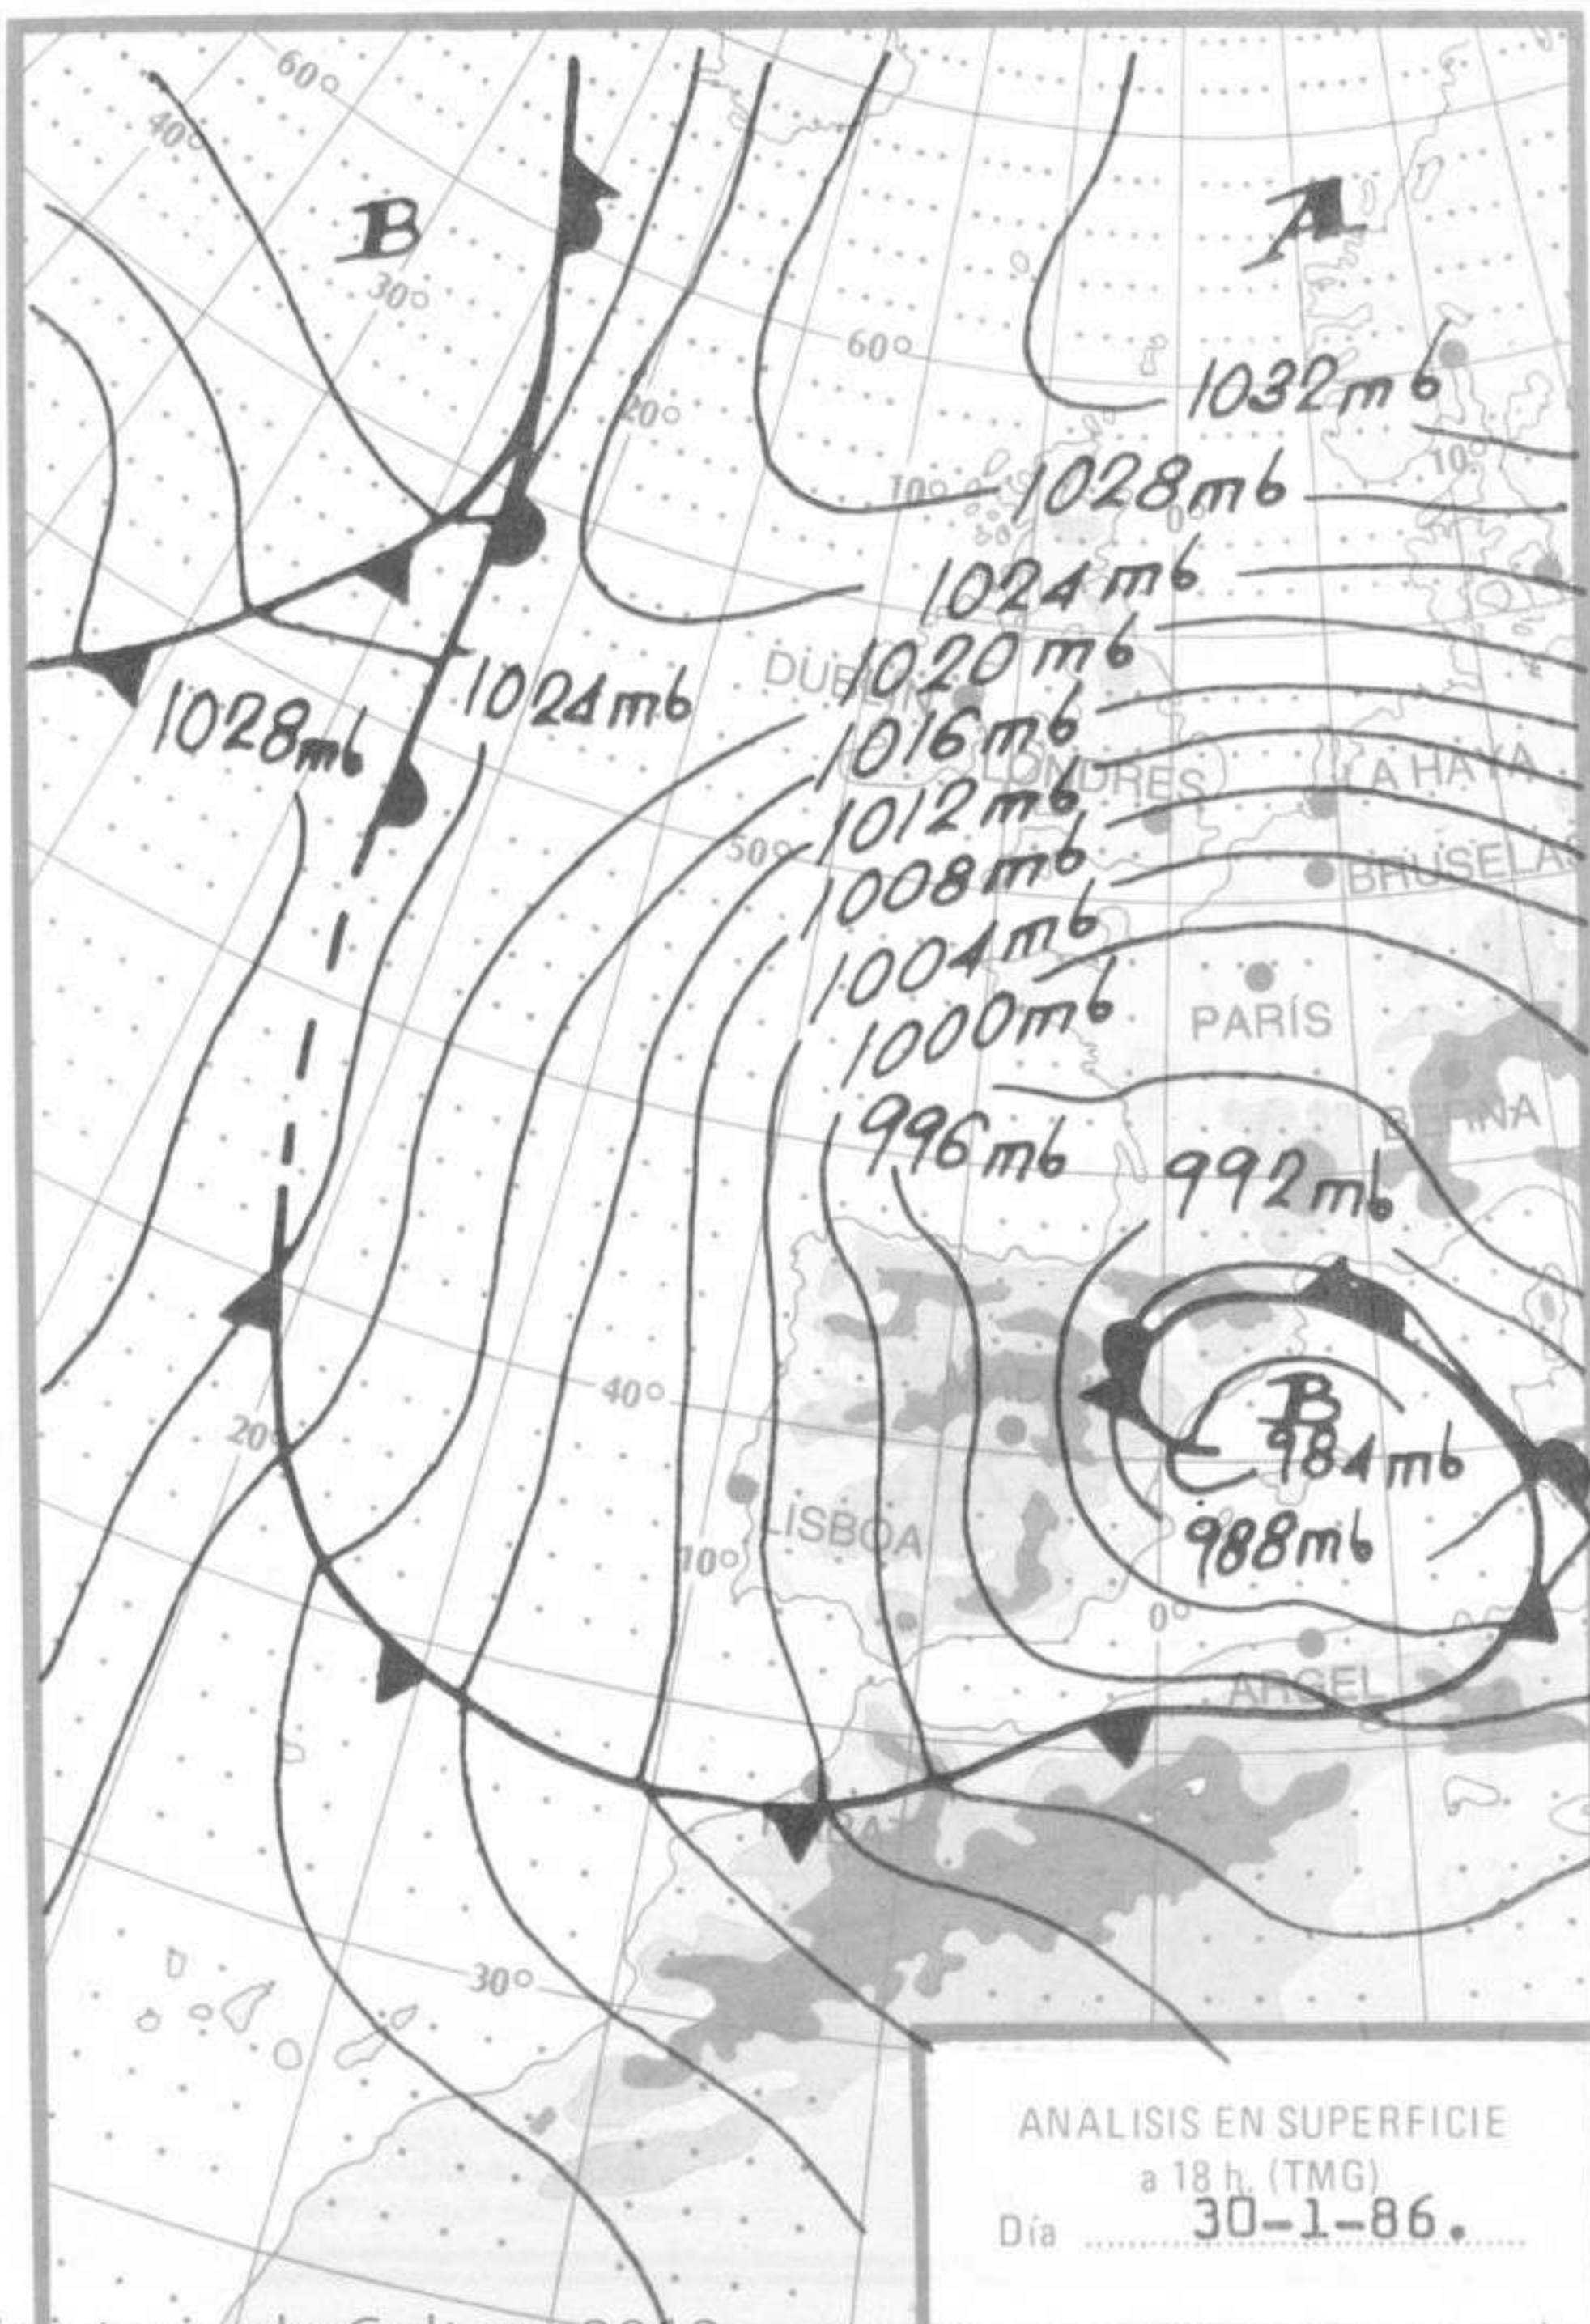 60°
40°
B
A
30°
60°
1032mb
20°
10°
10°
1028mb
0°
1024mb
1020mb
DUBLIN
1024mb
1028mb
1016mb
LONDRES
LA HAYA
1012mb
50°
1008mb
BRUSELAS
1004mb
PARÍS
1000mb
BERNA
996mb
992mb
40°
B
20°
984mb
LISBOA
988mb
10°
0°
ARGEL
RABAT
30°
ANALISIS EN SUPERFICIE
a 18 h. (TMG)
Día 30-1-86.